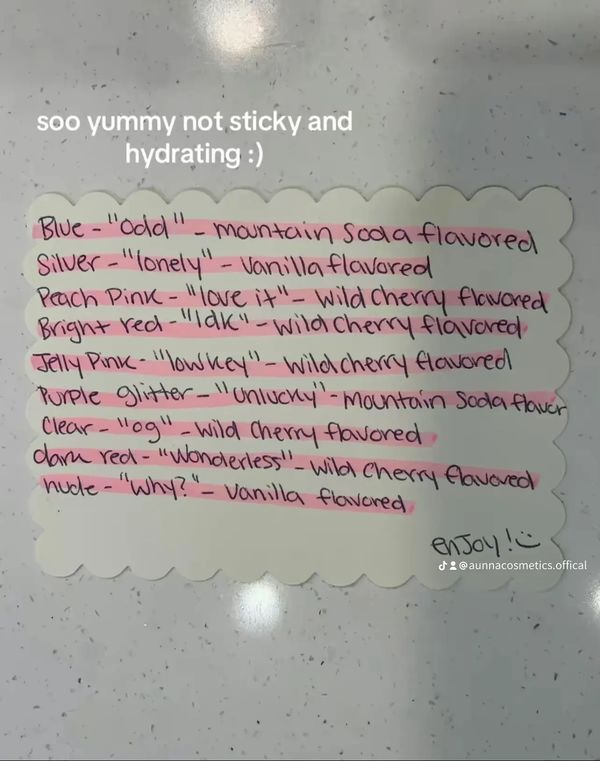 soo yummy not sticky and
hydrating :)
Blue - "Odd" - mountain Soda flavored
Silver - "lonely" - Vanilla flavored
Peach Pink - "love it" - Wild Cherry flavored
Bright red - "Idk" - Wild Cherry flavored
Jelly Pink - "lowkey" - Wild cherry flavored
Purple glitter - "Unlucky" - Mountain Soda flavor
Clear - "og" - Wild Cherry flavored
dark red - "Wonderless" - Wild Cherry flavored
nude - "Why?" - Vanilla flavored
enJoy! :)
@aunnacosmetics.offical